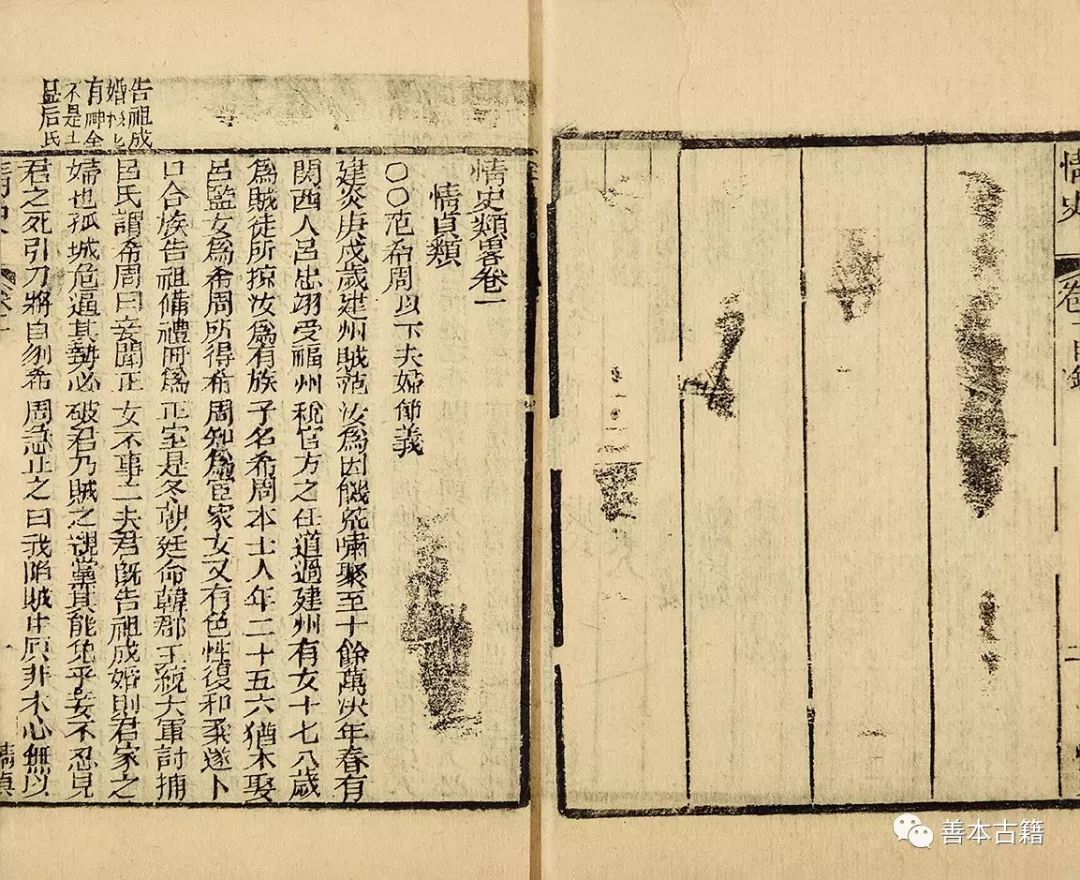 情史
卷一目錄
二
情史類畧卷一
情貞類
○○范希周以下夫婦節義
建炎庚戌歲建州賊范汝為因饑荒嘯聚至十餘萬次年春有
関西人呂忠翊受福州稅官方之任道過建州有女十七八歲
為賊徒所掠汝為有族子名希周本士人年二十五六猶未娶
呂監女為希周所得希周知為宦家女又有色性復和柔遂卜
日合族告祖備禮冊為正室是冬朝廷命韓郡王統大軍討捕
呂氏謂希周曰妾聞正女不事二夫君既告祖成婚則君家之
婦也孤城危逼其勢必破君乃賊之親黨其能免乎妾不忍見
君之死引刀將自刎希周急止之曰我陷賊中原非本心無以
告祖成
婚
有
不是
呂氏
情史
卷一
一
情貞
善本古籍